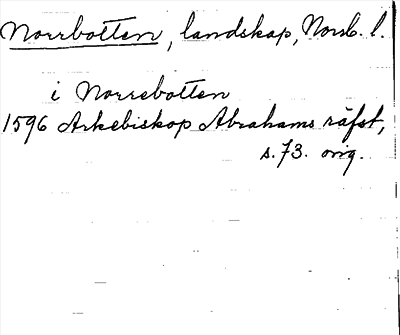 Norrbotten, landskap, Norrb. l.
i Norrebotten
1596 Arkebiskop Abrahams räfst,
s. 73. orig.